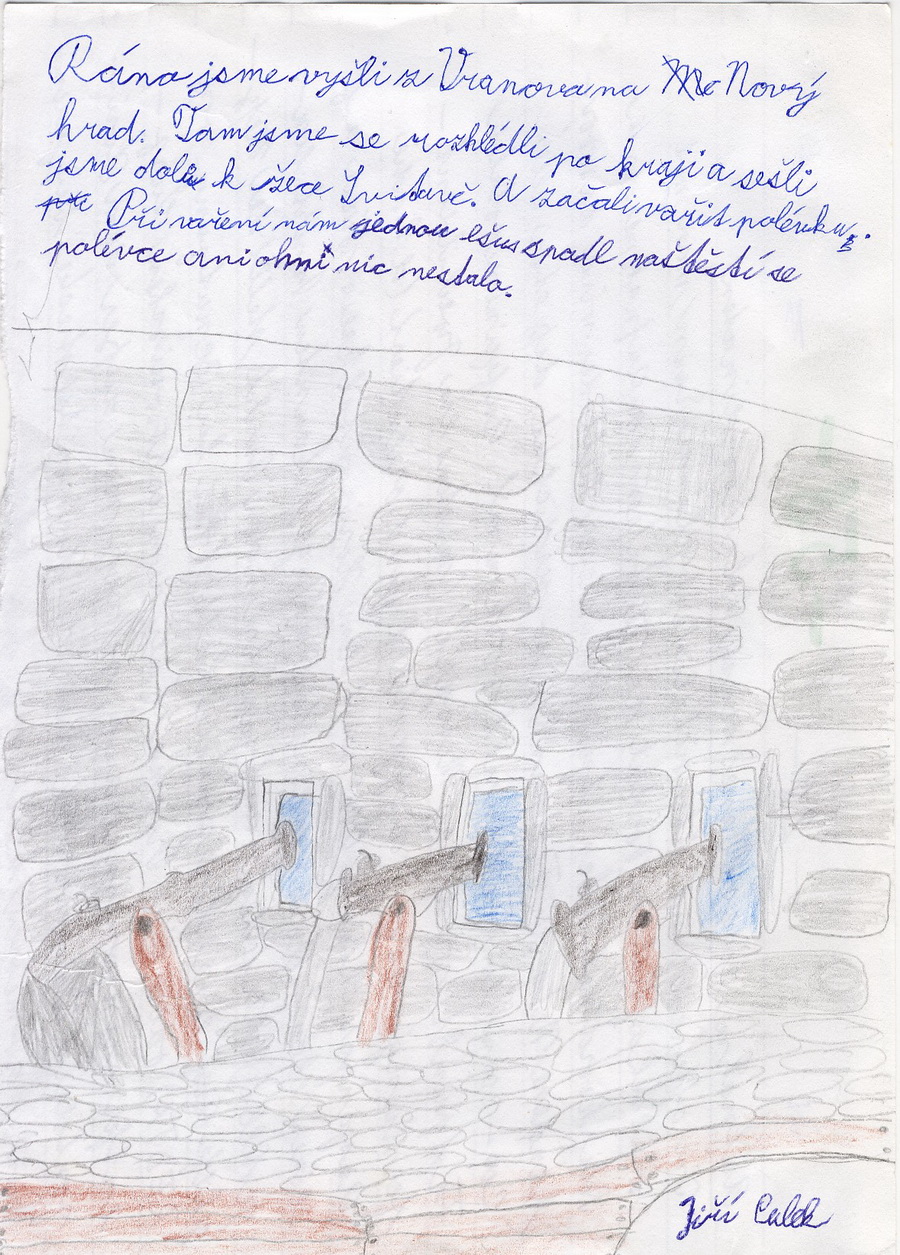 Ráno jsme vyšli z Vranova na Nový
hrad. Tam jsme se rozhlédli po kraji a sešli
jsme dolů k řece Svitavě. A začali vařit polévku.
Při vaření nám jednou ešus spadl naštěstí se
polévce ani ohni nic nestalo.
Jiří Culek